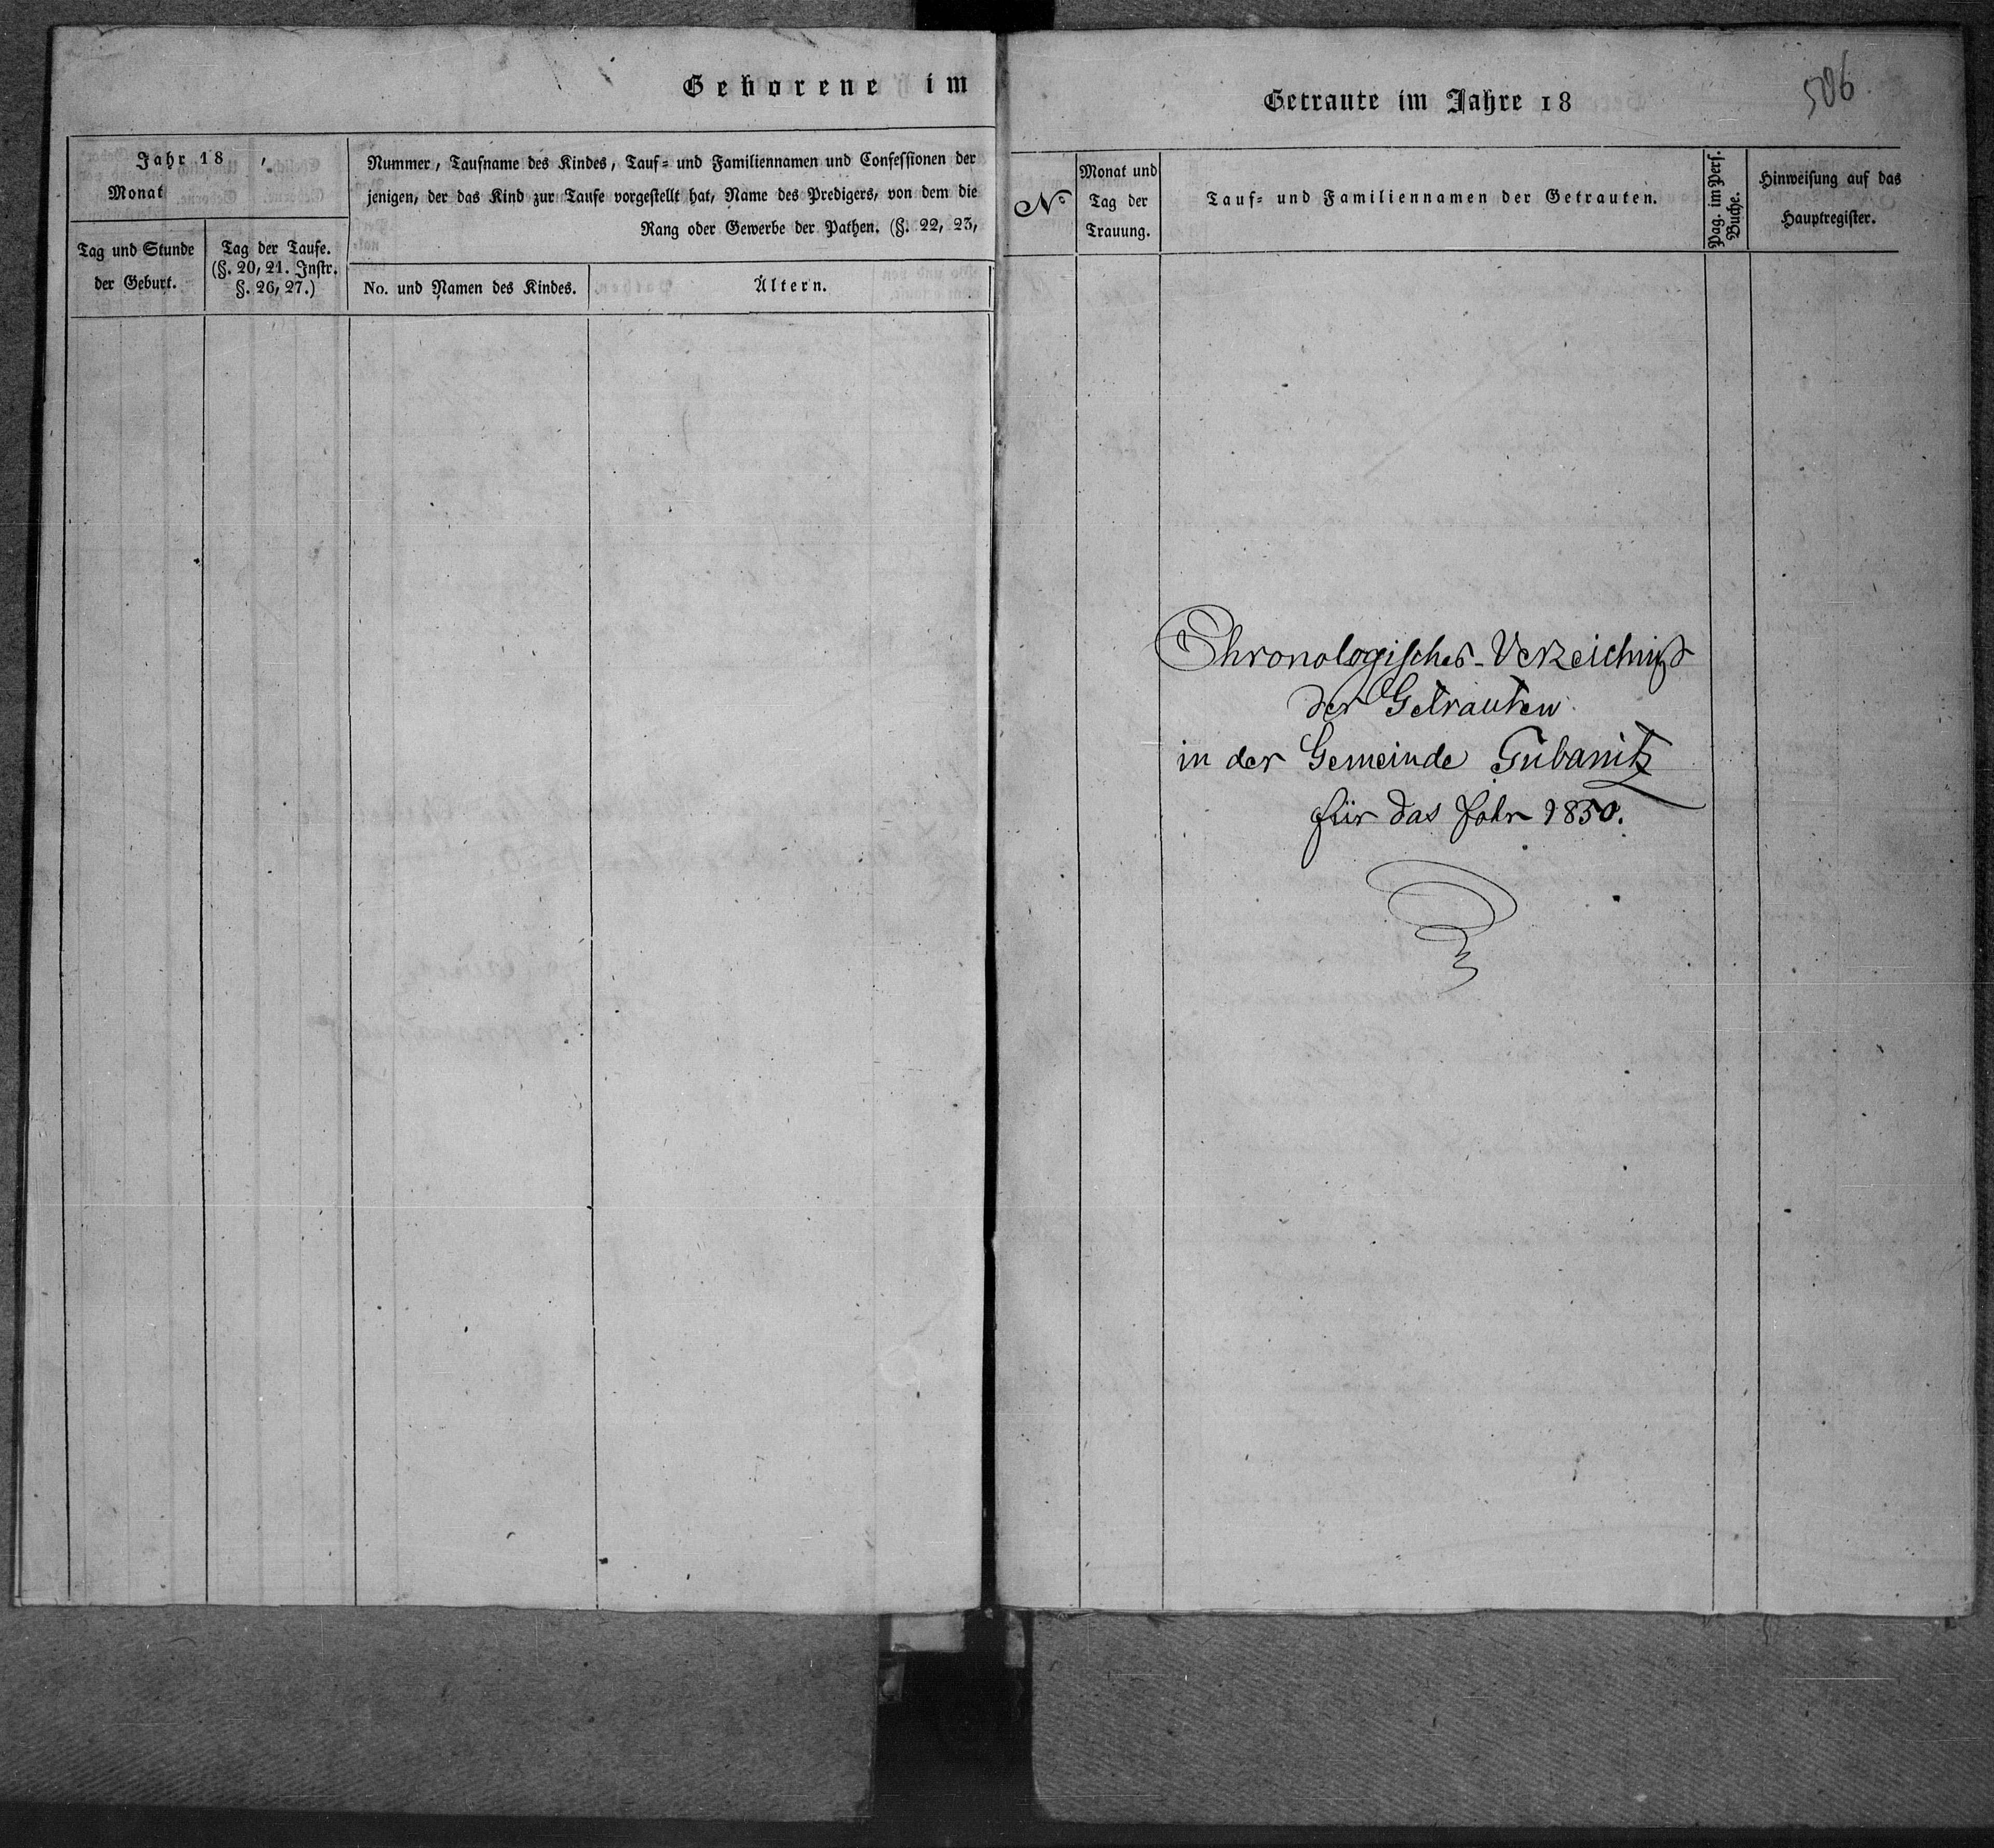 Geborene im
Jahr 18
Monat
Tag und Stunde
der Geburt.
Tag der Taufe.
(§. 20, 21. Instr.
§. 26, 27.)
Nummer, Taufname des Kindes, Tauf= und Familiennamen und Confessionen der
jenigen, der das Kind zur Taufe vorgestellt hat, Name des Predigers, von dem die
Rang oder Gewerbe der Pathen. (§. 22, 23,
No. und Namen des Kindes.
Ältern.
506
Getraute im Jahre 18
No
Monat und
Tag der
Trauung.
Tauf= und Familiennamen der Getrauten.
Pag. im Pers.
Buche.
Hinweisung auf das
Hauptregister.
Chronologisches Verzeichniß
der Getrauten
in der Gemeinde Gubanitz
für das Jahr 1850.